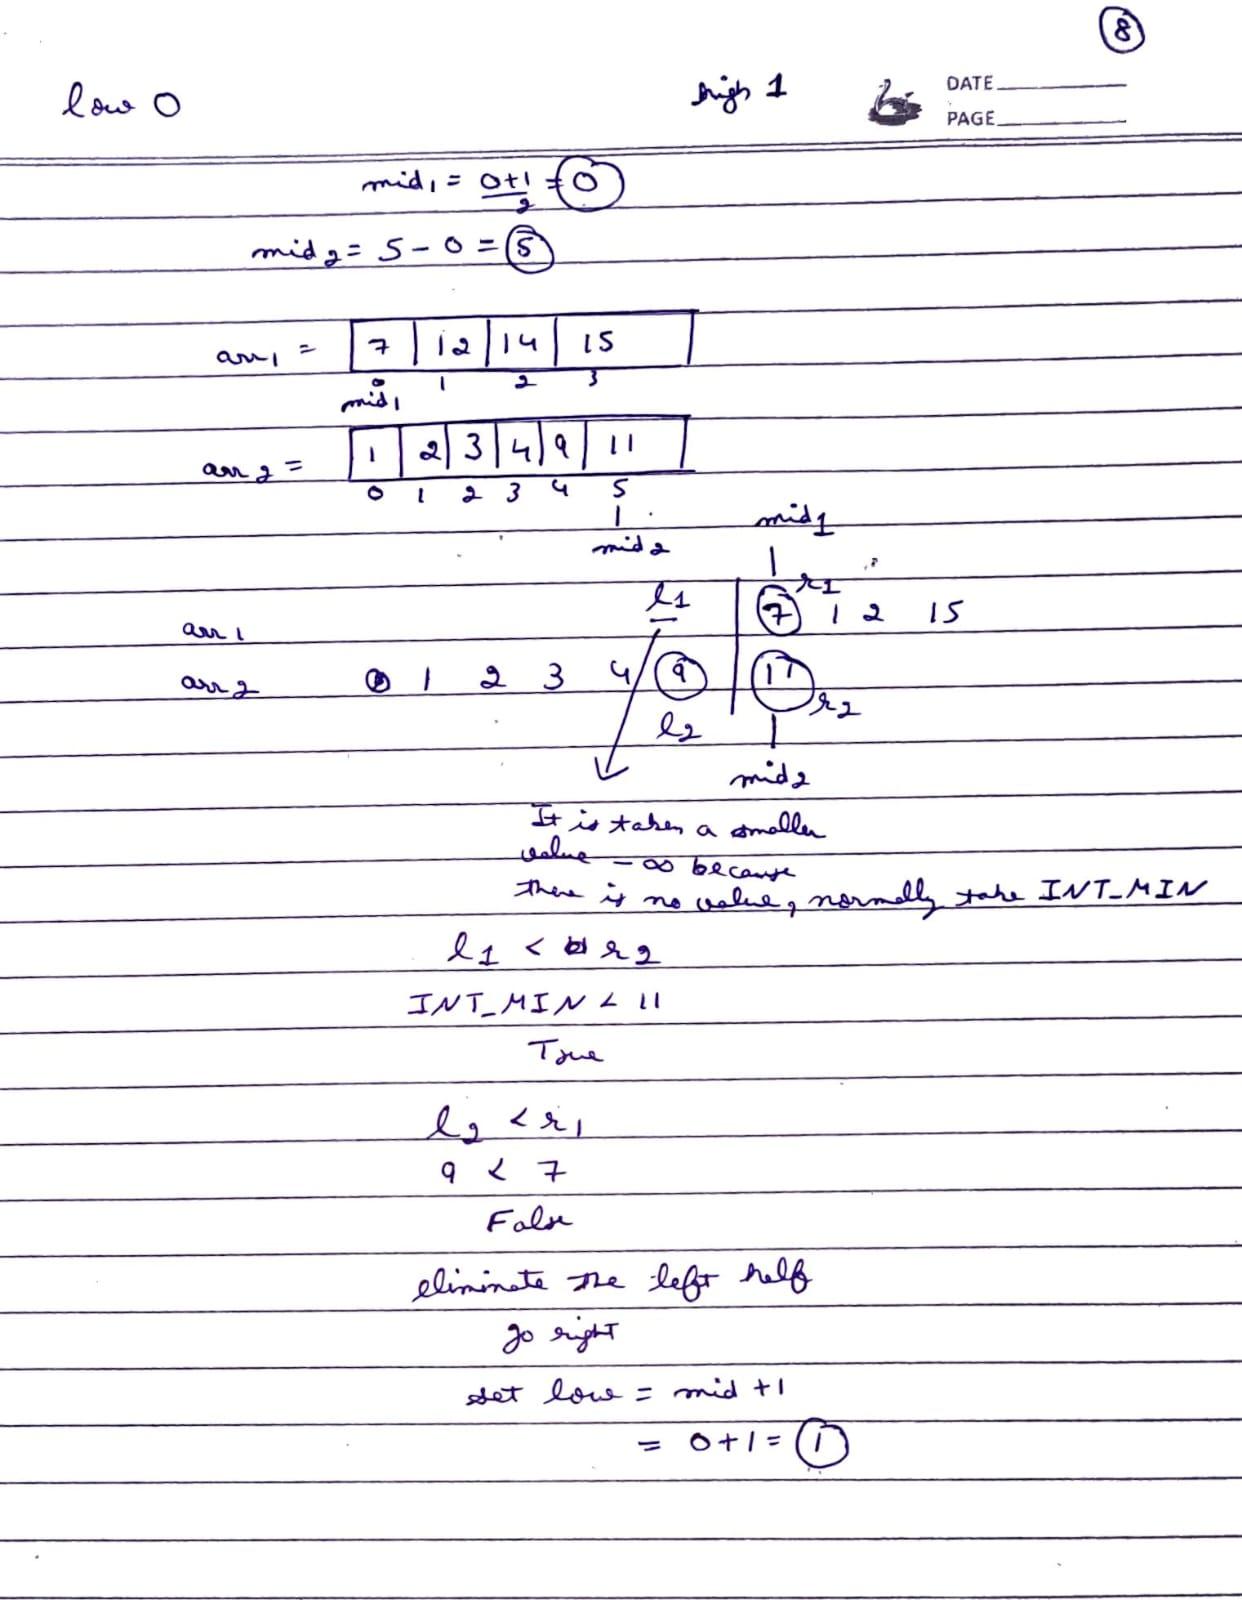 8
low 0 high 1 DATE
PAGE
mid1 = 0+1/2 = 0
mid2 = 5 - 0 = 5
arr1 = 7 12 14 15
0 1 2 3
mid1
arr2 = 1 2 3 4 9 11
0 1 2 3 4 5
mid2 mid1
l1 r1
arr1 7 1 2 15
arr2 1 2 3 4 9 11
l2 r2
mid2
It is taken a smaller
value -∞ because
there is no value, normally take INT_MIN
l1 < r2
INT_MIN < 11
True
l2 < r1
9 < 7
False
eliminate the left half
go right
set low = mid + 1
= 0+1 = 1